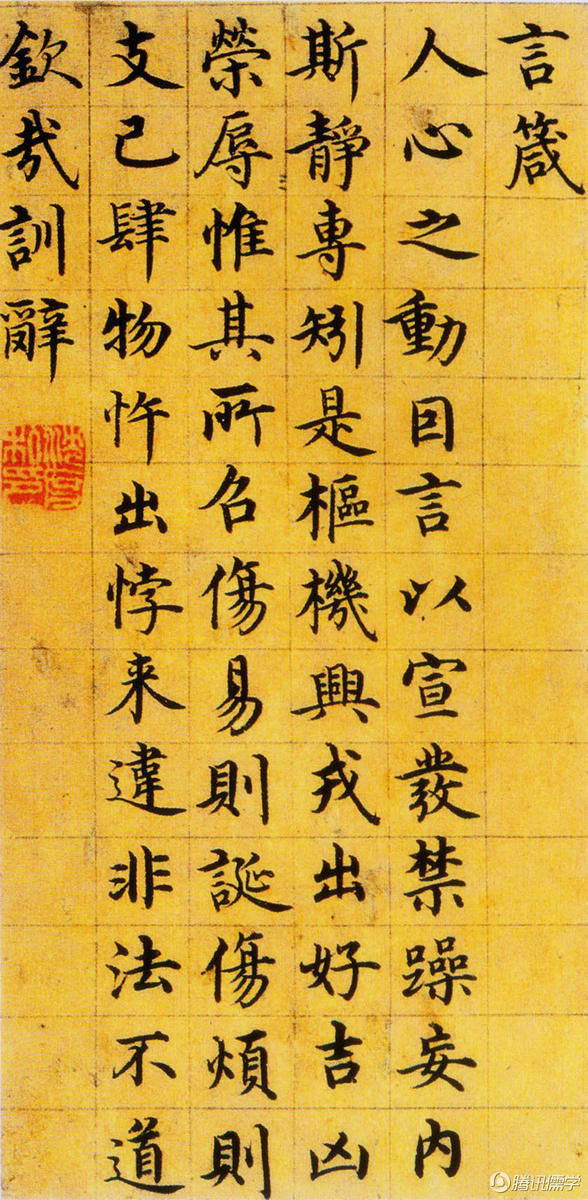 言箴
人心之動因言以宣發禁躁妄內
斯靜專矧是樞機興戎出好吉凶
榮辱惟其所召傷易則誕傷煩則
支己肆物忤出悖来違非法不道
欽哉訓辭
腾讯儒学